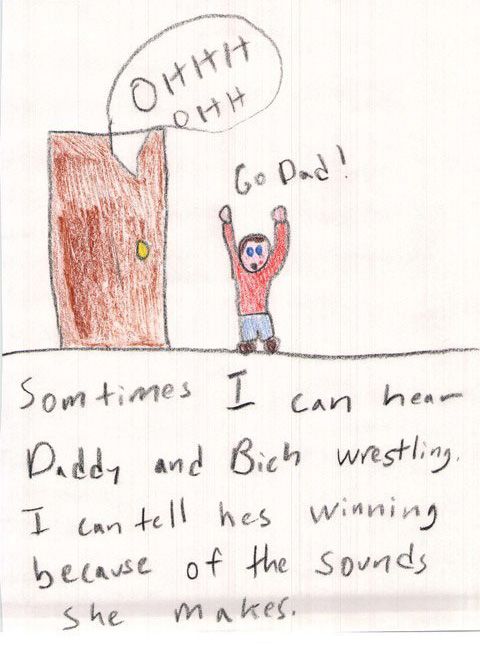 OHHHH
OHH
Go Dad!
Somtimes I can hear
Daddy and Bich wrestling.
I can tell hes winning
because of the sounds
she makes.